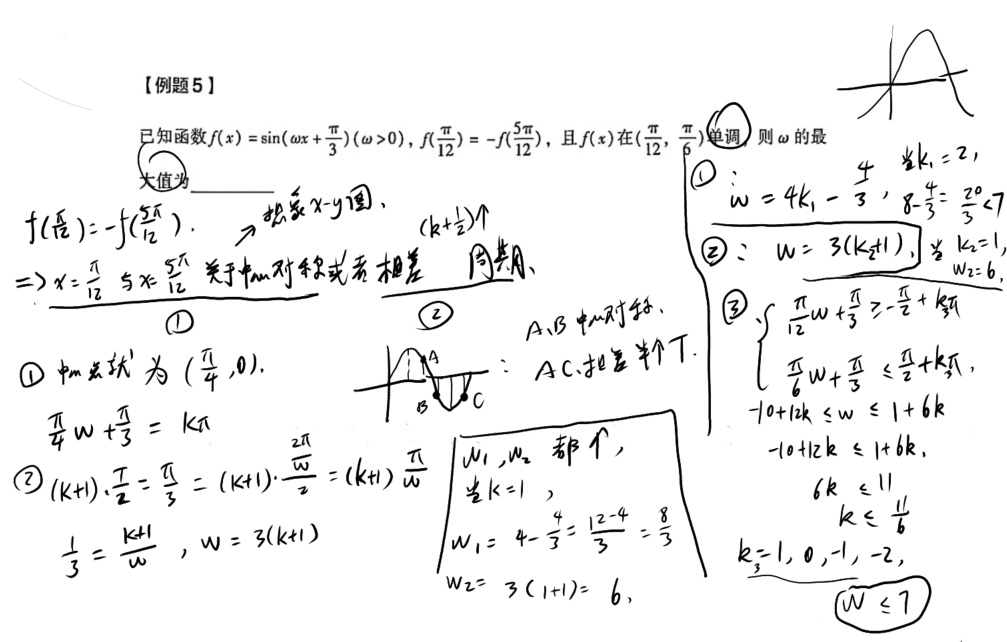 【例题5】
已知函数f(x)=sin(ωx+π/3)(ω>0), f(π/12)=-f(5π/12), 且f(x)在(π/12, π/6)单调, 则ω的最
大值为________
f(π/12)=-f(5π/12).
→想象x-y图、
(k+1/2)个
=> x=π/12 与x=5π/12 关于中心对称或者 相差 周期、
①
②
① 中点就为(π/4,0).
π/4 w+π/3 = kπ
② (k+1)·T/2=π/3=(k+1)·(2π/w)/2=(k+1)π/w
1/3=(k+1)/w, w=3(k+1)
A
B
C
: A、B中心对称、
AC、相差半个T.
w₁,w₂都↑,
当k=1,
w₁=4-4/3=(12-4)/3=8/3
w₂=3(1+1)=6、
①: w=4k₁-4/3, 当k₁=2,
8-4/3=20/3<7
②: w=3(k₂+1), 当k₂=1,
w₂=6、
③ { π/12 w+π/3 ≥ -π/2+k₃π
π/6 w+π/3 ≤ π/2+k₃π,
-10+12k ≤ w ≤ 1+6k
-10+12k ≤ 1+6k,
6k ≤ 11
k ≤ 11/6
k₃=1, 0, -1, -2,
w ≤ 7